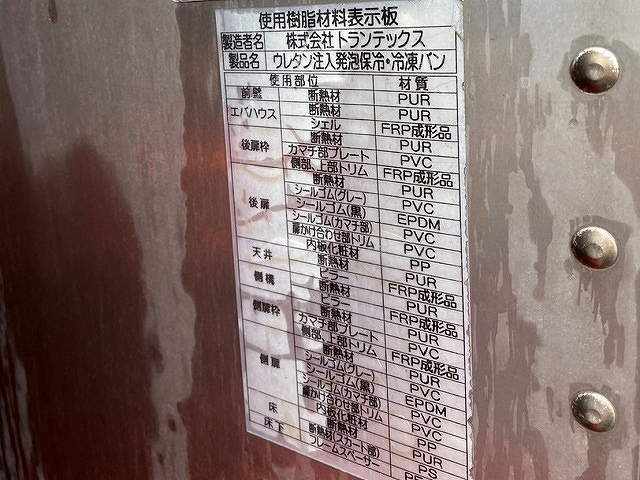 使用樹脂材料表示板
製造者名 株式会社 トランテックス
製品名 ウレタン注入発泡保冷・冷凍バン
使用部位 材質
前壁 断熱材 PUR
エバハウス 断熱材 PUR
シェル FRP成形品
後扉枠 断熱材 PUR
カマチ部プレート PVC
側部、上部トリム FRP成形品
後扉 断熱材 PUR
シールゴム(グレー) PVC
シールゴム(黒) EPDM
シールゴム(カマチ部) PVC
扉かけ合わせ部トリム PVC
内板化粧材 PP
天井 断熱材 PUR
側構 ピラー FRP成形品
断熱材 PUR
側扉枠 ピラー FRP成形品
断熱材 PUR
カマチ部プレート PVC
側部、上部トリム FRP成形品
側扉 断熱材 PUR
シールゴム(グレー) PVC
シールゴム(黒) EPDM
シールゴム(カマチ部) PVC
扉かけ合わせ部トリム PVC
内板化粧材 PP
床 断熱材 PUR
床下 断熱材(スカート部) PS
フレームスペーサー